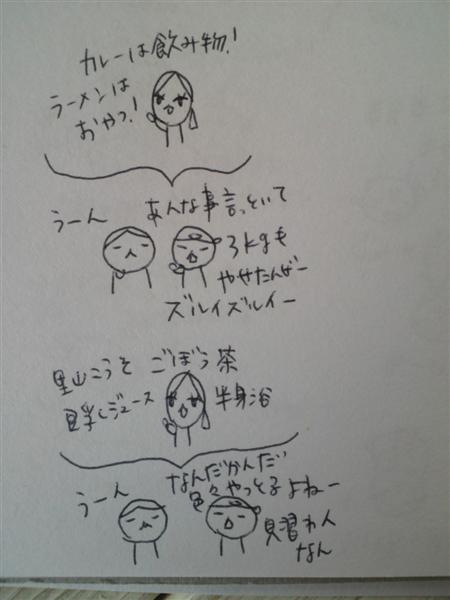 カレーは飲み物!
ラーメンは
おやつ!
うーん
あんな事言っといて
3kgも
やせたんだー
ズルイズルイー
里山こうそ ごぼう茶
豆乳しジュース 半身浴
うーん
なんだかんだ
色々やっとるよねー
見習わん
なん